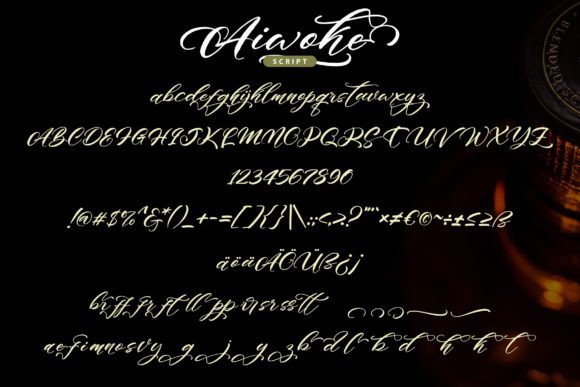 Aiwohe
SCRIPT
abcdefghijklmnopqrstuvwxyz
ABCDEFGHIJKLMNOPQRSTUVWXYZ
1234567890
!@#$%^&*()_+-=[]{}|\:;<,>.?"'"×≠€©~÷±≤≥ß
äöäÄÖÜß¿¡
br ff fr ft ll pp rr sr ss tt
a e f i m n o s v y g j y z b d l b d h k t
BLENDED